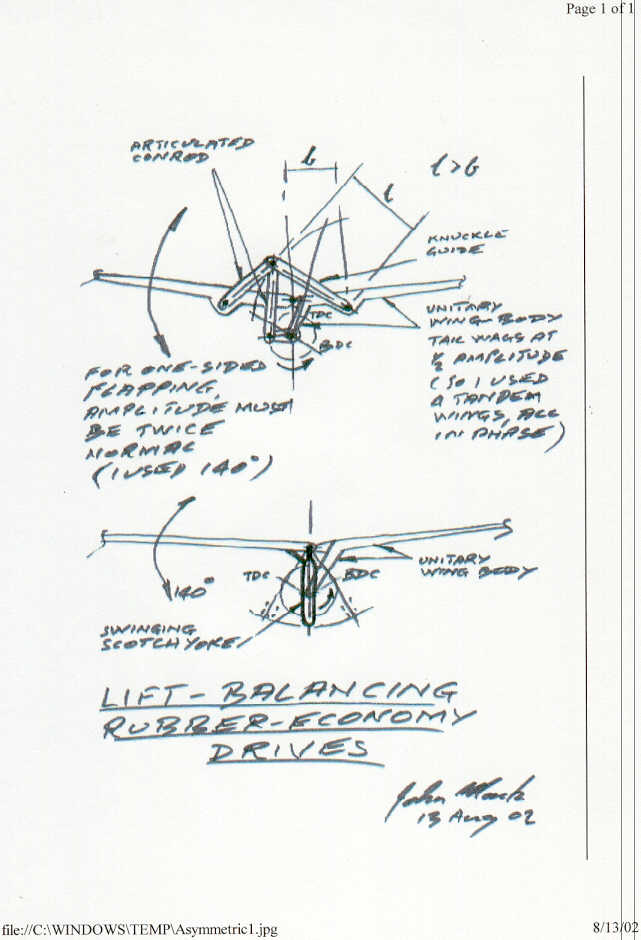 Page 1 of 1
ARTICULATED
CONROD
b
l > b
l
KNUCKLE
GUIDE
TDC
BDC
UNITARY
WING-BODY
TAIL WAGS AT
½ AMPLITUDE
(SO I USED
A TANDEM
WINGS, ALL
IN PHASE)
FOR ONE-SIDED
FLAPPING,
AMPLITUDE MUST
BE TWICE
NORMAL
(I USED 140°)
TDC
BDC
UNITARY
WING BODY
140°
SWINGING
SCOTCH YOKE
LIFT-BALANCING
RUBBER-ECONOMY
DRIVES
John
13 Aug 02
file://C:\WINDOWS\TEMP\Asymmetric1.jpg
8/13/02